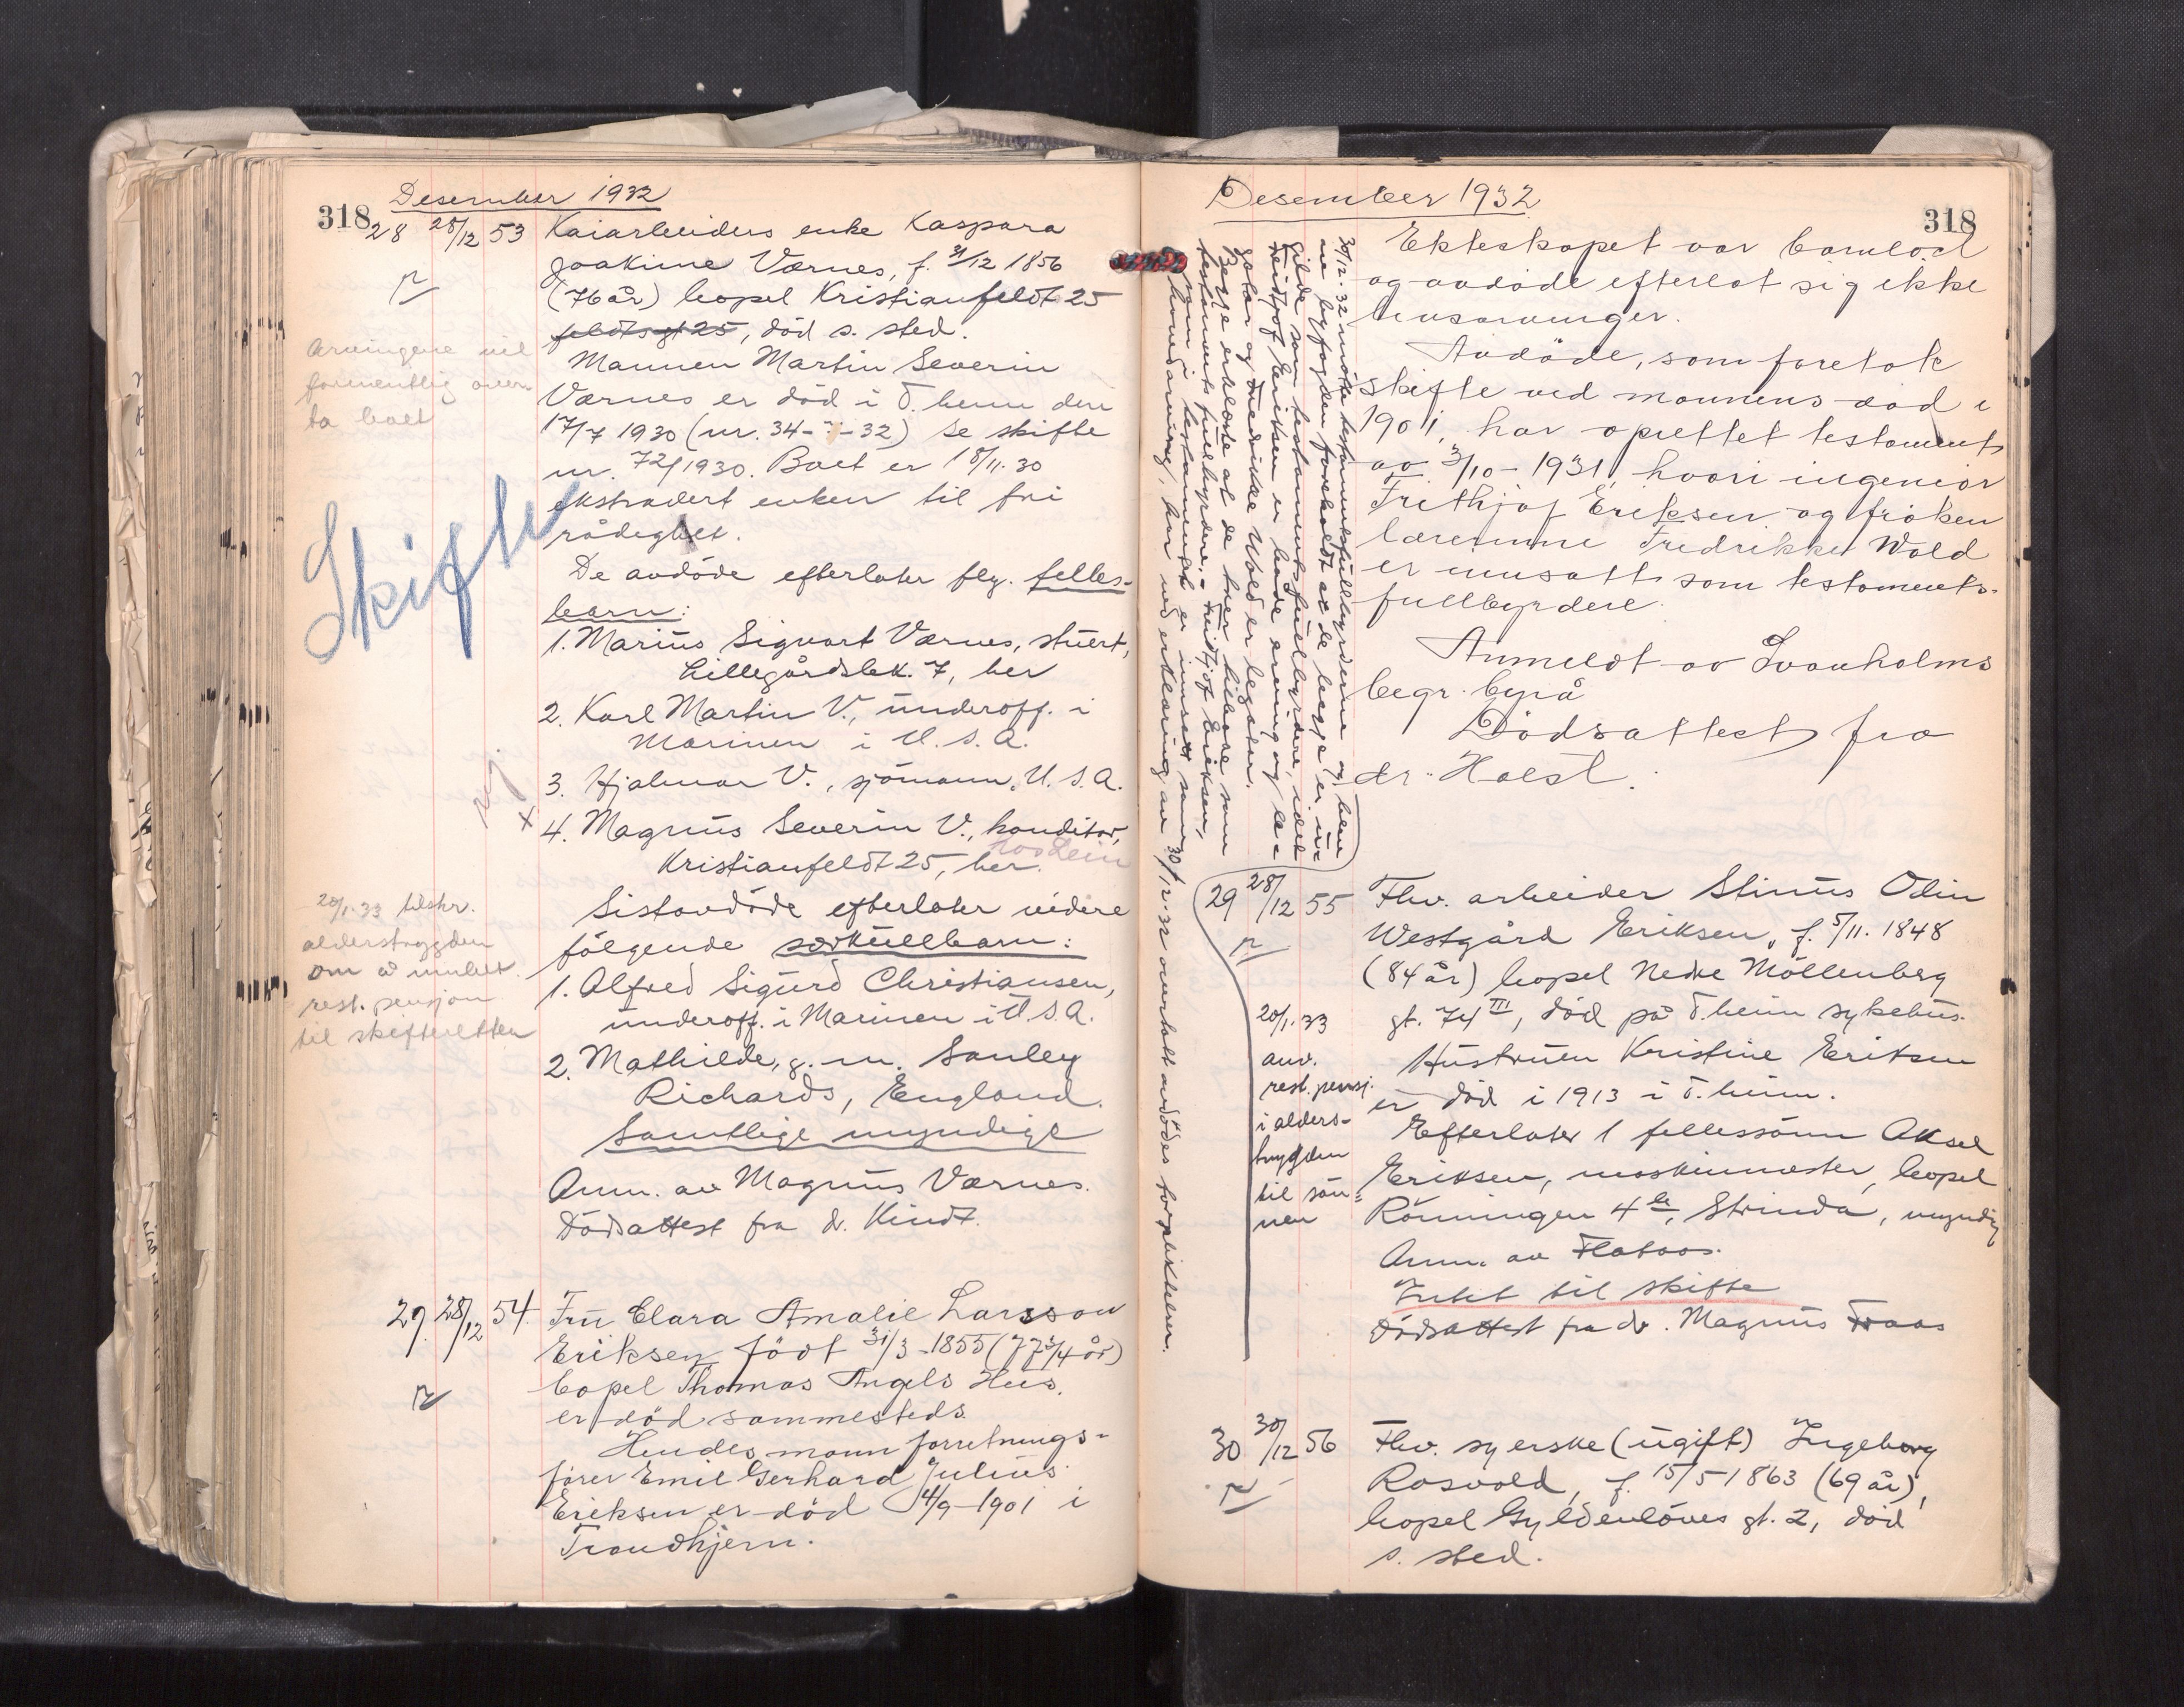 Desember 1932
318
28 28/12 53 Kaiarbeiders enke Kaspara
Joakime Værnes, f. 31/12 1856
(76 år) bopel Kristianfeldt 25
feldtsgt 25, død s. sted.
Mannen Martin Severin
Værnes er död i T.heim den
17/7 1930 (nr. 34-7-32) se skifte
nr. 72/1930. Boet er 18/11.30
ekstradert enken til fri
rådighet.
De avdöde efterlater flg. felles-
barn:
1. Marius Sigvart Værnes, stuert,
Lillegårdsbk. 7, her
2. Karl Martin V., underoff. i
Marinen i U.S.A.
3. Hjalmar V., sjömann, U.S.A.
x 4. Magnus Severin V., konditor,
Kristianfeldt 25, her.
Sistavdöde efterlater videre
fölgende særkullbarn:
1. Alfred Sigurd Christiansen,
underoff. i Marinen i U.S.A.
2. Mathilde, g. m. Sanley
Richards, England.
Samtlige myndige
Anm. av Magnus Værnes.
Dödsattest fra dr. Kindt.
Arvingene vil
formentlig over-
ta boet
Skifte
20/1.33 tilskr.
alderstrygden
om å innbet.
rest. pensjon
til skifteretten
29. 28/12 54. Fru Clara Amalie Larsson
Eriksen födt 31/3-1855 (77 3/4 år)
bopel Thomas Angels Hus.
er död sammesteds.
Hendes mann forretnings-
förer Emil Gerhard Julius
Eriksen er död 4/9-1901 i
Trondhjem.
Desember 1932
318
Ekteskapet var barnlöst
og avdöde efterlot sig ikke
livsarvinger.
Avdöde, som foretok
skifte ved mannens död i
1901, har oprettet testament
av 3/10-1931, hvori ingeniör
Frithjof Eriksen og fröken
lærerinne Fredrikke Wold
er innsatt som testaments-
fullbyrdere.
Anmeldt av Svanholms
begr. byrå
Dödsattest fra
dr. Holst.
30/12-32 mötte testamentsfullbyrderne og blev
av byfogden foreholdt at de begge er inn-
gilde som testamentsfullbyrdere, idet
Fridtjof Eriksen er både arving og le-
gatar og Fredrikke Wold er legatar.
Begge erklærte at de trær tilbake som
testamentsfullbyrdere. - Fridtjof Eriksen,
som i testamentet er innsatt som
hovedarving, har ved erklæring av 30/12-32 overtatt avdödes forpliktelser.
29 28/12 55 Fhv. arbeider Stinus Odin
Westgård Eriksen, f. 5/11. 1848
(84 år) bopel Nedre Möllenberg
gt. 74 III, död på T.heim sykehus.
Hustruen Kristine Eriksen
er död i 1913 i T.heim.
Efterlater 1 fellessönn Aksel
Eriksen, maskinmester, bopel
Rönningen 4 b, Strinda, myndig
Anm. av Flataas.
Intet til skifte
Dödsattest fra dr. Magnus Fraas
20/1.33
anv.
rest. pensj.
i alders-
trygden
til sön-
nen
30 30/12 56 Fhv. syerske (ugift) Ingeborg
Rosvold, f. 15/5 1863 (69 år),
bopel Gyldenlöves gt. 2, död
s. sted.